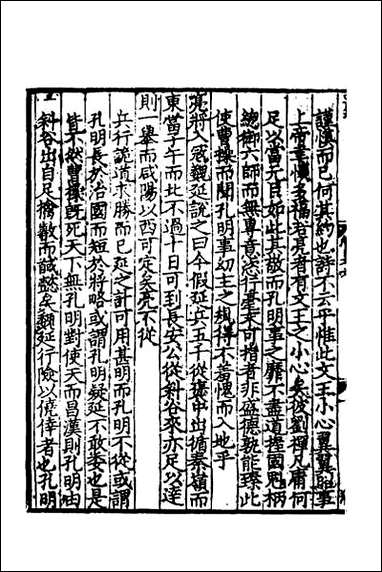 謹慎而已何其約也詩不云乎惟此文王小心翼翼昭事
上帝聿懷多福若亮者有文王之小心矣彼劉禪凡庸何
足以當元目如此其敬而孔明事之靡不盡道握國兙柄
總御六師而無專意恣行毫末可指者非盛德孰能臻此
使曹操而聞孔明事幼主之規得不羞愧而入地乎
亮將入冦魏延說之曰今假延兵五千從褒中出循秦嶺而
東當子午而北不過十日可到長安公從斜谷來亦足以達
則一舉而咸陽以西可定矣亮不從
兵行詭道求勝而已延之計可用甚明而孔明不從或謂
孔明長於治國而短於將略或謂孔明疑延不敢委也是
皆不然曹操既死天下無孔明對使天而昌漢則孔明由
斜谷出自足擒叡而誠懿矣魏延行險以僥倖者也孔明